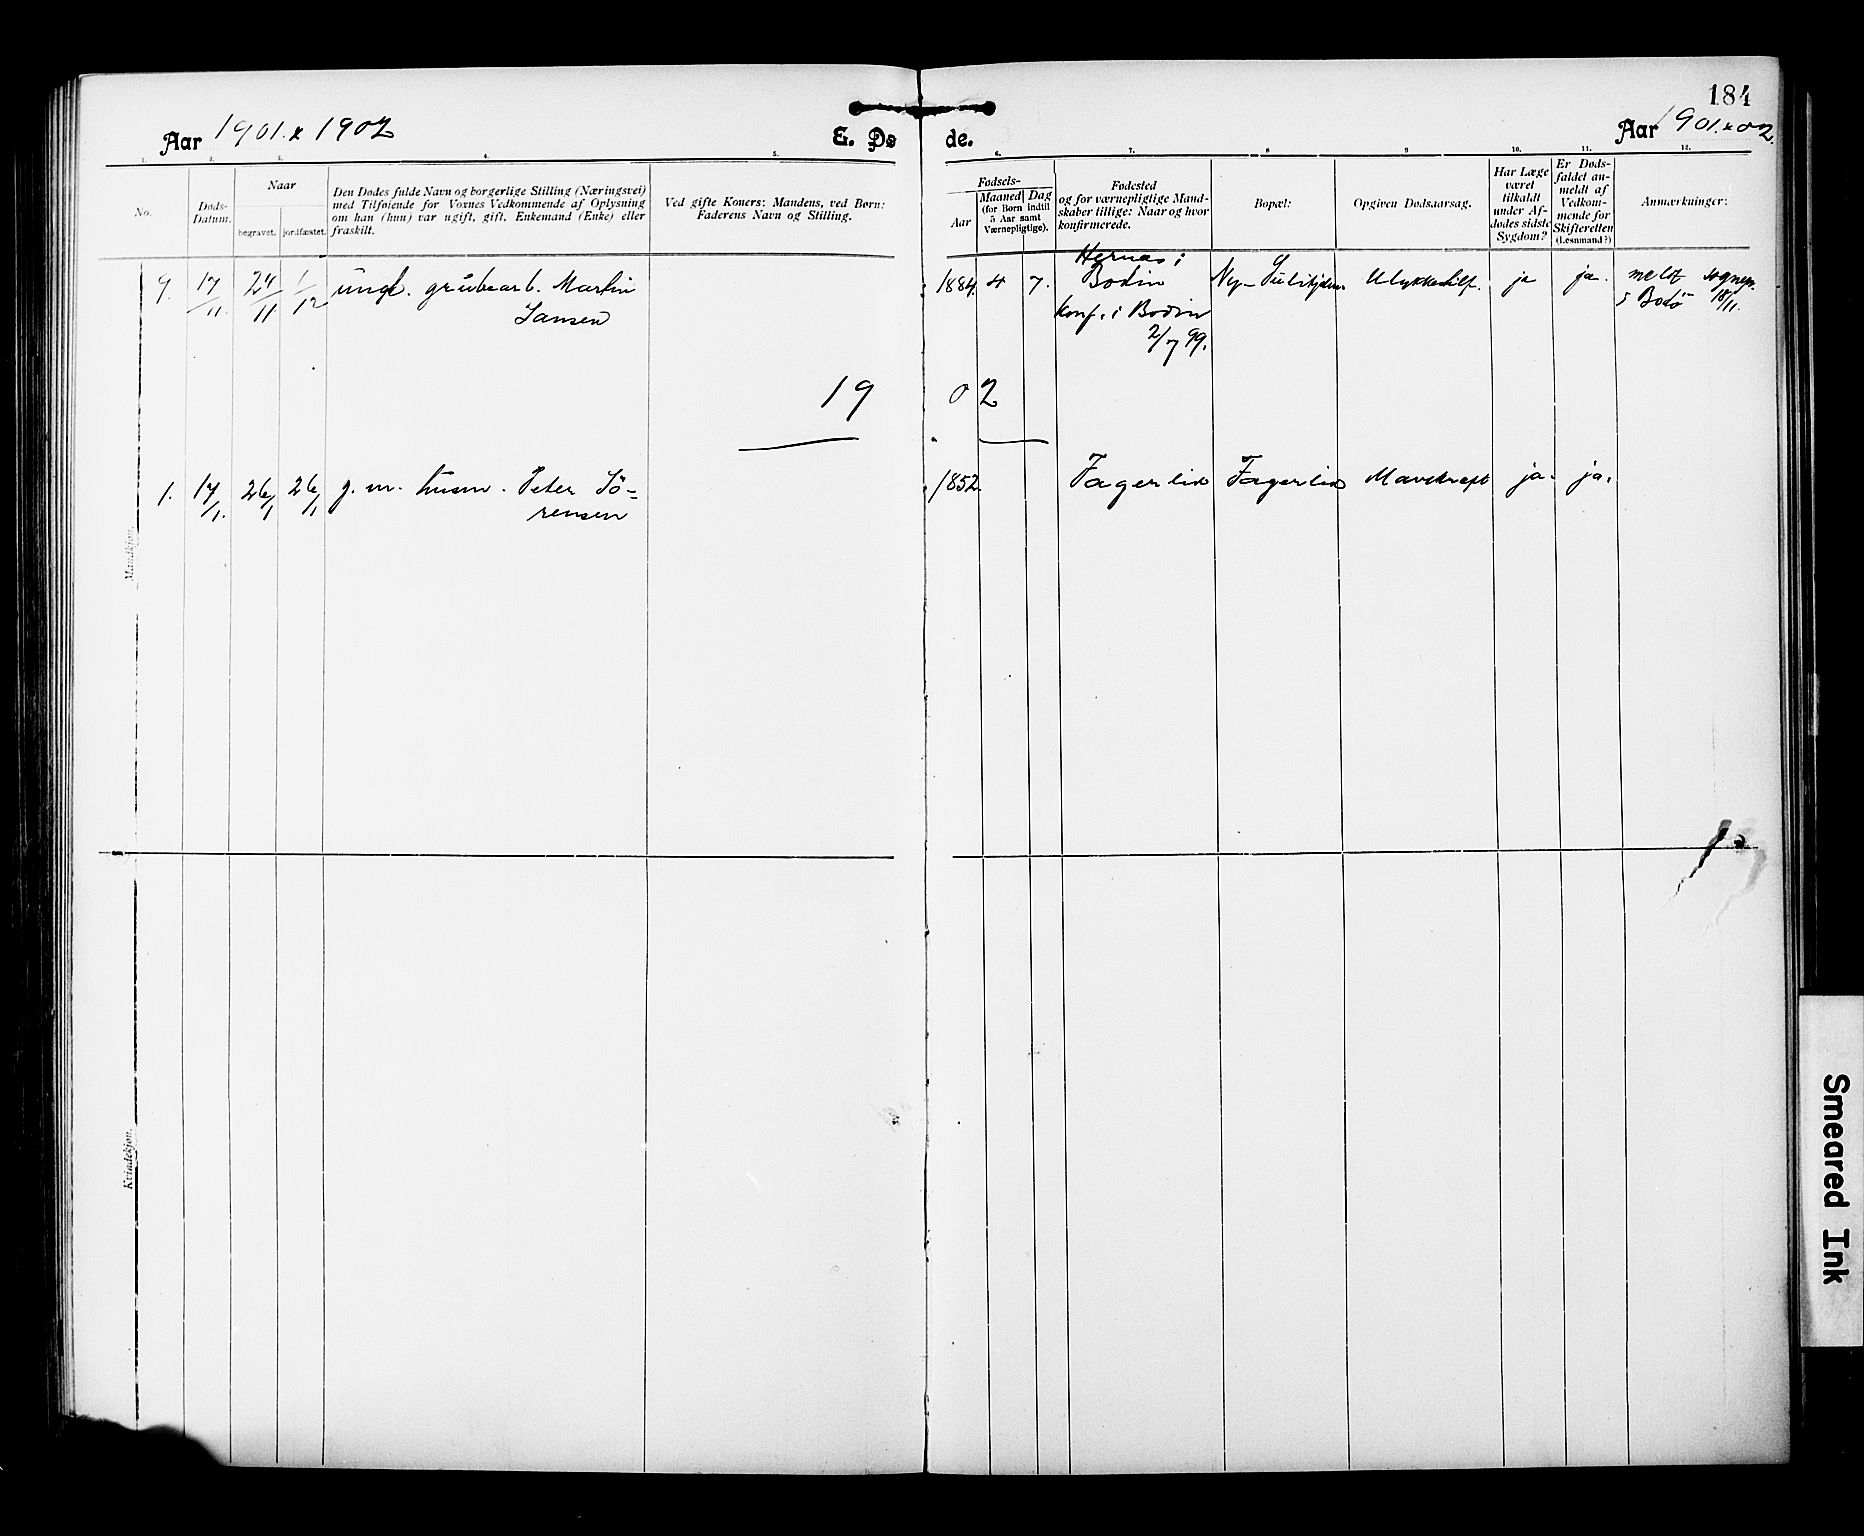 184
Aar 1901 & 1902
E. Dø
de.
Aar 1901 & 02.
1.
2.
3.
4.
5.
6.
7.
8
9
10.
11.
12.
No.
Døds-
Datum.
Naar
begravet.
jordfæstet.
Den Dødes fulde Navn og borgerlige Stilling (Næringsvei)
med Tilføiende for Voxnes Vedkommende af Oplysning
om han (hun) var ugift, gift, Enkemand (Enke) eller
fraskilt.
Ved gifte Koners: Mandens, ved Børn:
Faderens Navn og Stilling.
Fødsels-
Aar
Maaned Dag
(for Børn indtil
5 Aar samt
Værnepligtige).
Fødested
og for værnepligtige Mand-
skaber tillige: Naar og hvor
konfirmerede.
Bopæl:
Opgiven Dødsaarsag.
Har Læge
været
tilkaldt
under Af-
dødes sidste
Sygdom?
Er Døds-
faldet an-
meldt af
Vedkom-
mende for
Skifteretten
(Lensmand?)
Anmærkninger:
9. 17/11. 24/11 1/12 ungk. grubearb. Martin
Jansen
1884. 4 7.
Hernæs i
Bodin
konf. i Bodin
2/7 99.
Ny-Sulitjelma
Ulykkestilf.
ja
ja.
meldt sognepr.
i Bodø 18/11.
1902
1. 17/1. 26/1 26/1 g. m. husm. Peter Sö-
rensen
1852. Fagerlid Fagerlid Mavekræft ja. ja.
Mandkjøn.
Kvindekjøn.
Smeared Ink